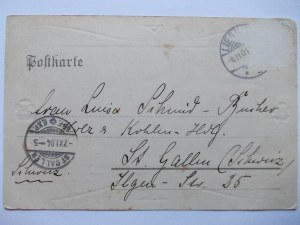 Postkarte
Frau Luisa Schmid-Bucher
Holz & Kohlen-Hdlg.
St Gallen (Schweiz)
Ilgen-Str. 35
Schweiz
ST GALLEN